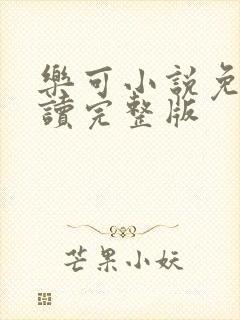 樂可小說免
讀完整版
芒果小妖